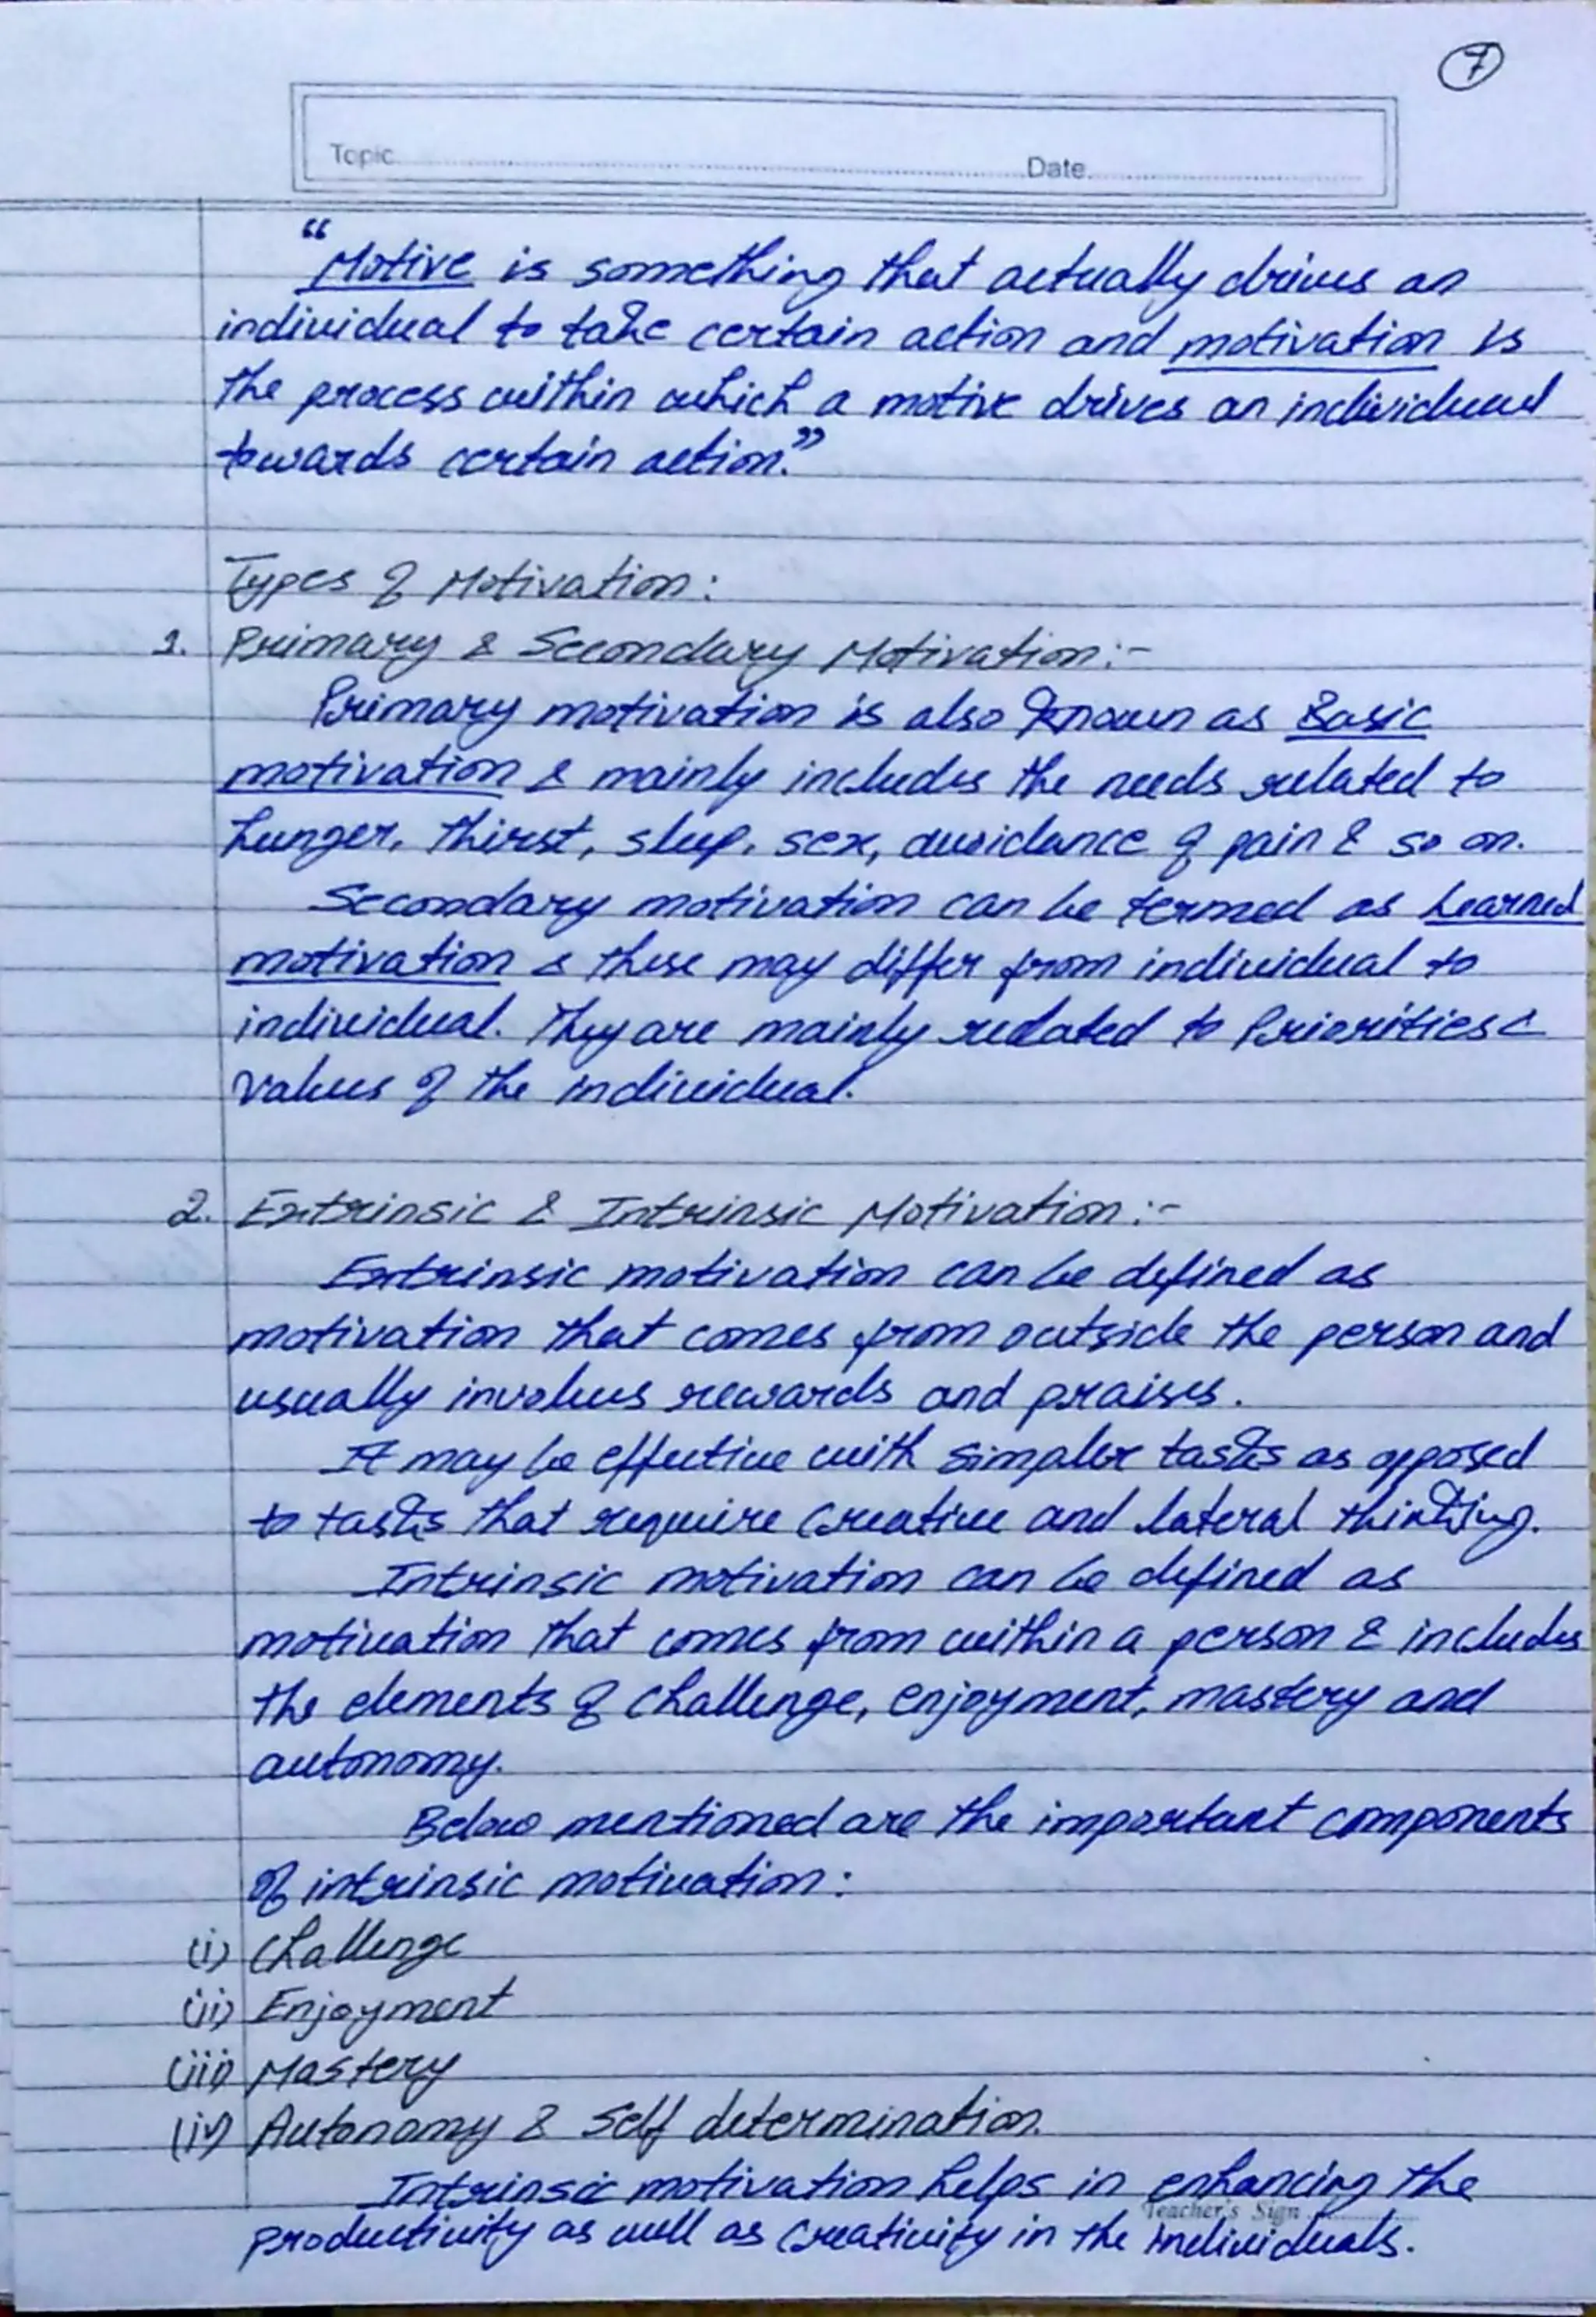 7
Topic Date
"Motive is something that actually drives an
individual to take certain action and motivation is
the process within which a motive drives an individual
towards certain action."
Types of Motivation:
1. Primary & Secondary Motivation:-
Primary motivation is also known as Basic
motivation & mainly includes the needs related to
hunger, thirst, sleep, sex, avoidance of pain & so on.
Secondary motivation can be termed as Learned
motivation & these may differ from individual to
individual. They are mainly related to Priorities &
values of the individual.
2. Extrinsic & Intrinsic Motivation:-
Extrinsic motivation can be defined as
motivation that comes from outside the person and
usually involves rewards and praises.
It may be effective with simpler tasks as opposed
to tasks that require creative and lateral thinking.
Intrinsic motivation can be defined as
motivation that comes from within a person & includes
the elements of challenge, enjoyment, mastery and
autonomy.
Below mentioned are the important components
of intrinsic motivation:
(i) Challenge
(ii) Enjoyment
(iii) Mastery
(iv) Autonomy & Self determination.
Intrinsic motivation helps in enhancing the
Teacher's Sign
productivity as well as creativity in the individuals.